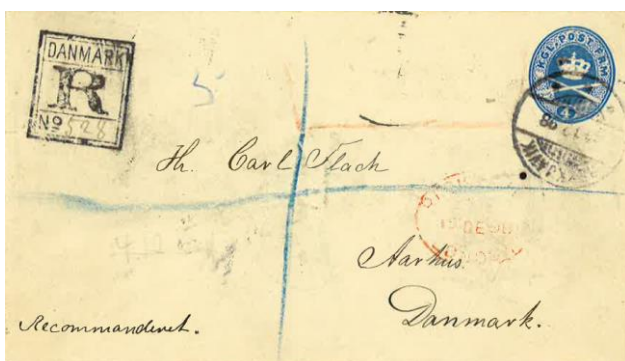 DANMARK
R
No 528
5
KGL. POST FRM.
4
Hr. Carl Flach
Aarhus.
Danmark.
Recommanderet.